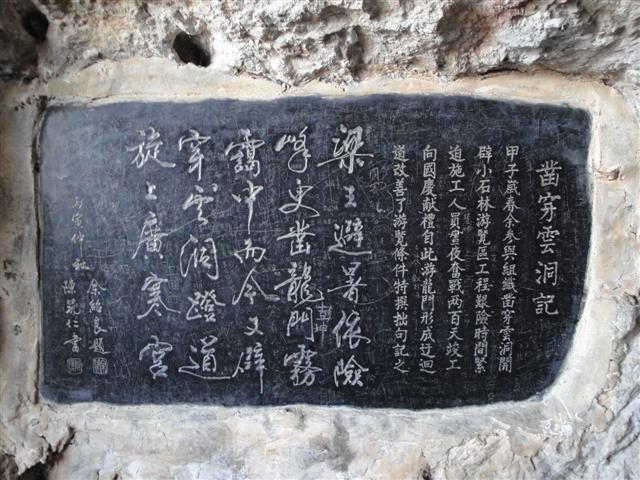 鑿穿雲洞記
甲子歲春余參與組織鑿穿雲洞開
辟小石林游覽區工程艱險時間緊
迫施工人員晝夜奮戰两百天竣工
向國慶献禮自此游龍門形成迂迴
道改善了游覽條件特撰拙句記之
梁王避暑依險
峰史鑿龍門霧
靄中而今又辟
穿雲洞蹬道
旋上廣寒宮
丙寅仲秋
余紹良題
陳乾仁書